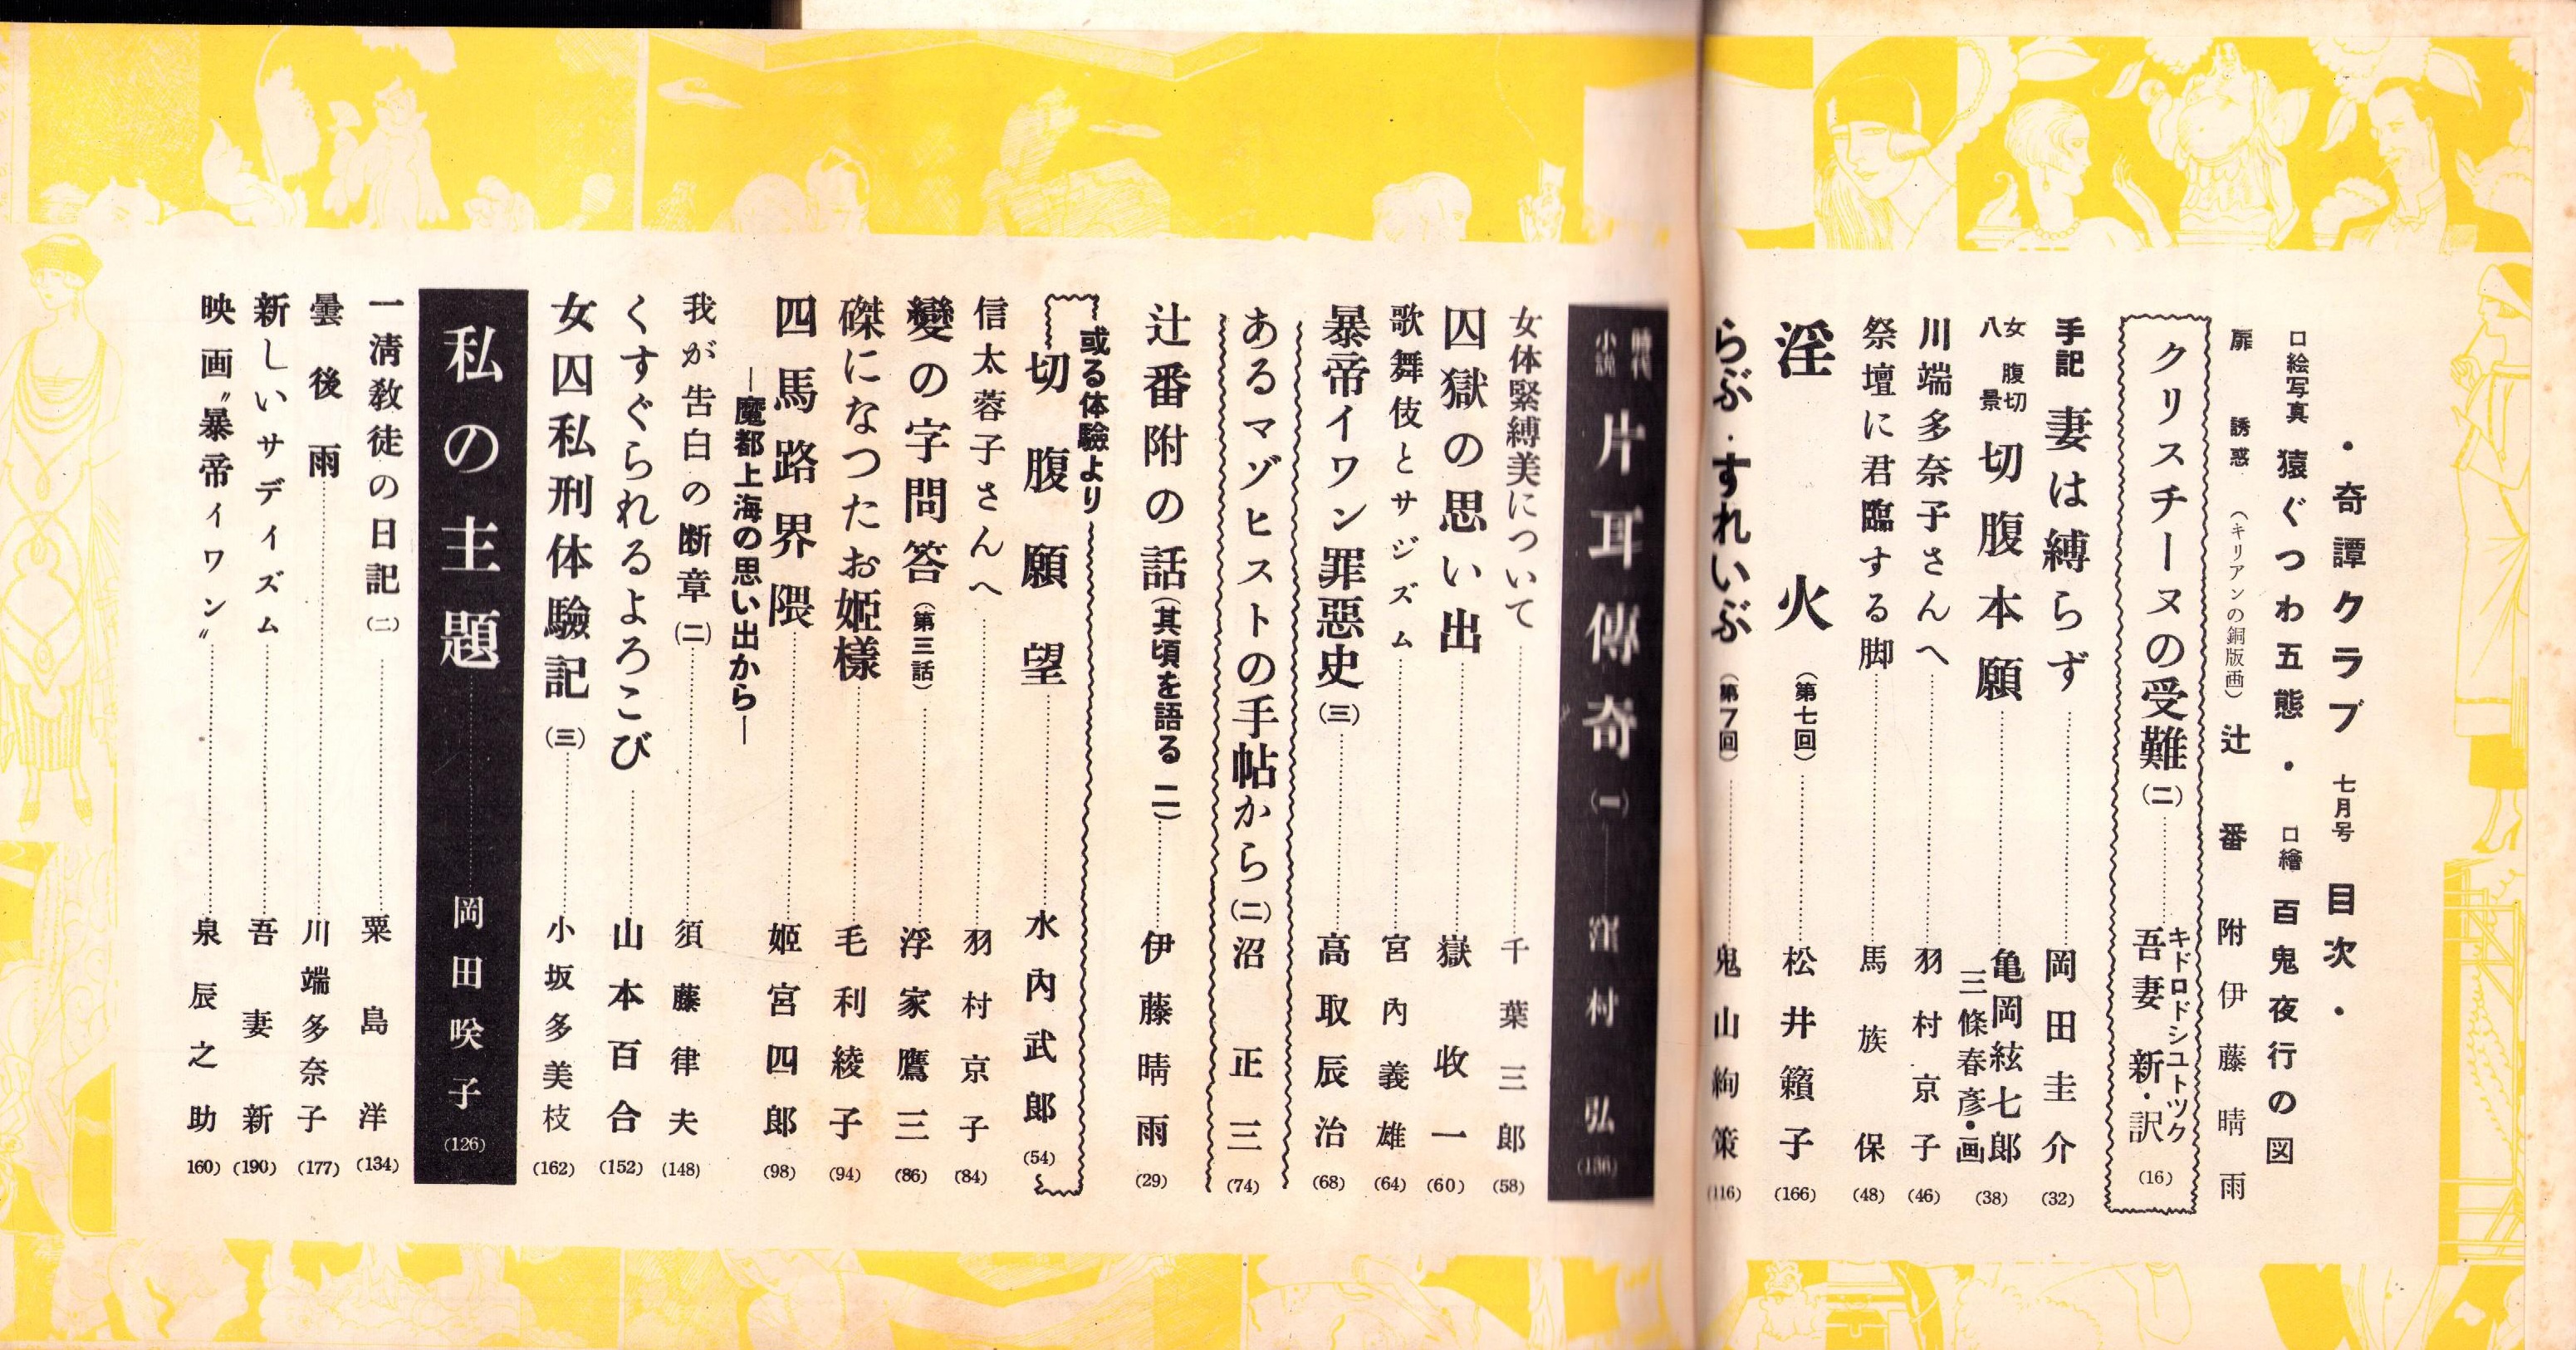 ・奇譚クラブ 七月号 目次・
口絵写真 猿ぐつわ五態・口繪 百鬼夜行の図
扉 誘惑(キリアンの銅版画) 辻番附 伊藤晴雨
クリスチーヌの受難(二)……吾妻新・訳 キドロドシユトツク (16)
手記 妻は縛らず……岡田圭介 (32)
女腹切八景 切腹本願……亀岡絃七郎 三條春彦・画 (38)
川端多奈子さんへ……羽村京子 (46)
祭壇に君臨する脚……馬族保 (48)
淫火(第七回)……松井籟子 (166)
らぶ・すれいぶ(第7回)……鬼山絢策 (116)
時代小説 片耳傳奇(一)……窪村弘 (136)
女体緊縛美について……千葉三郎 (58)
囚獄の思い出……嶽收一 (60)
歌舞伎とサジズム……宮內義雄 (64)
暴帝イワン罪惡史(三)……高取辰治 (68)
あるマゾヒストの手帖から(二) 沼正三 (74)
辻番附の話(其頃を語る 二)……伊藤晴雨 (29)
或る体驗より
切腹願望……水內武郎 (54)
信太蓉子さんへ……羽村京子 (84)
變の字問答(第三話)……浮家鷹三 (86)
磔になつたお姬様……毛利綾子 (94)
四馬路界隈……姬宮四郎 (98)
―魔都上海の思い出から―
我が告白の断章(二)……須藤律夫 (148)
くすぐられるよろこび……山本百合 (152)
女囚私刑体驗記(三)……小坂多美枝 (162)
私の主題……岡田咲子 (126)
一淸敎徒の日記(二)……粟島洋 (134)
曇後雨……川端多奈子 (177)
新しいサディズム……吾妻新 (190)
映画〝暴帝イワン〟……泉辰之助 160)